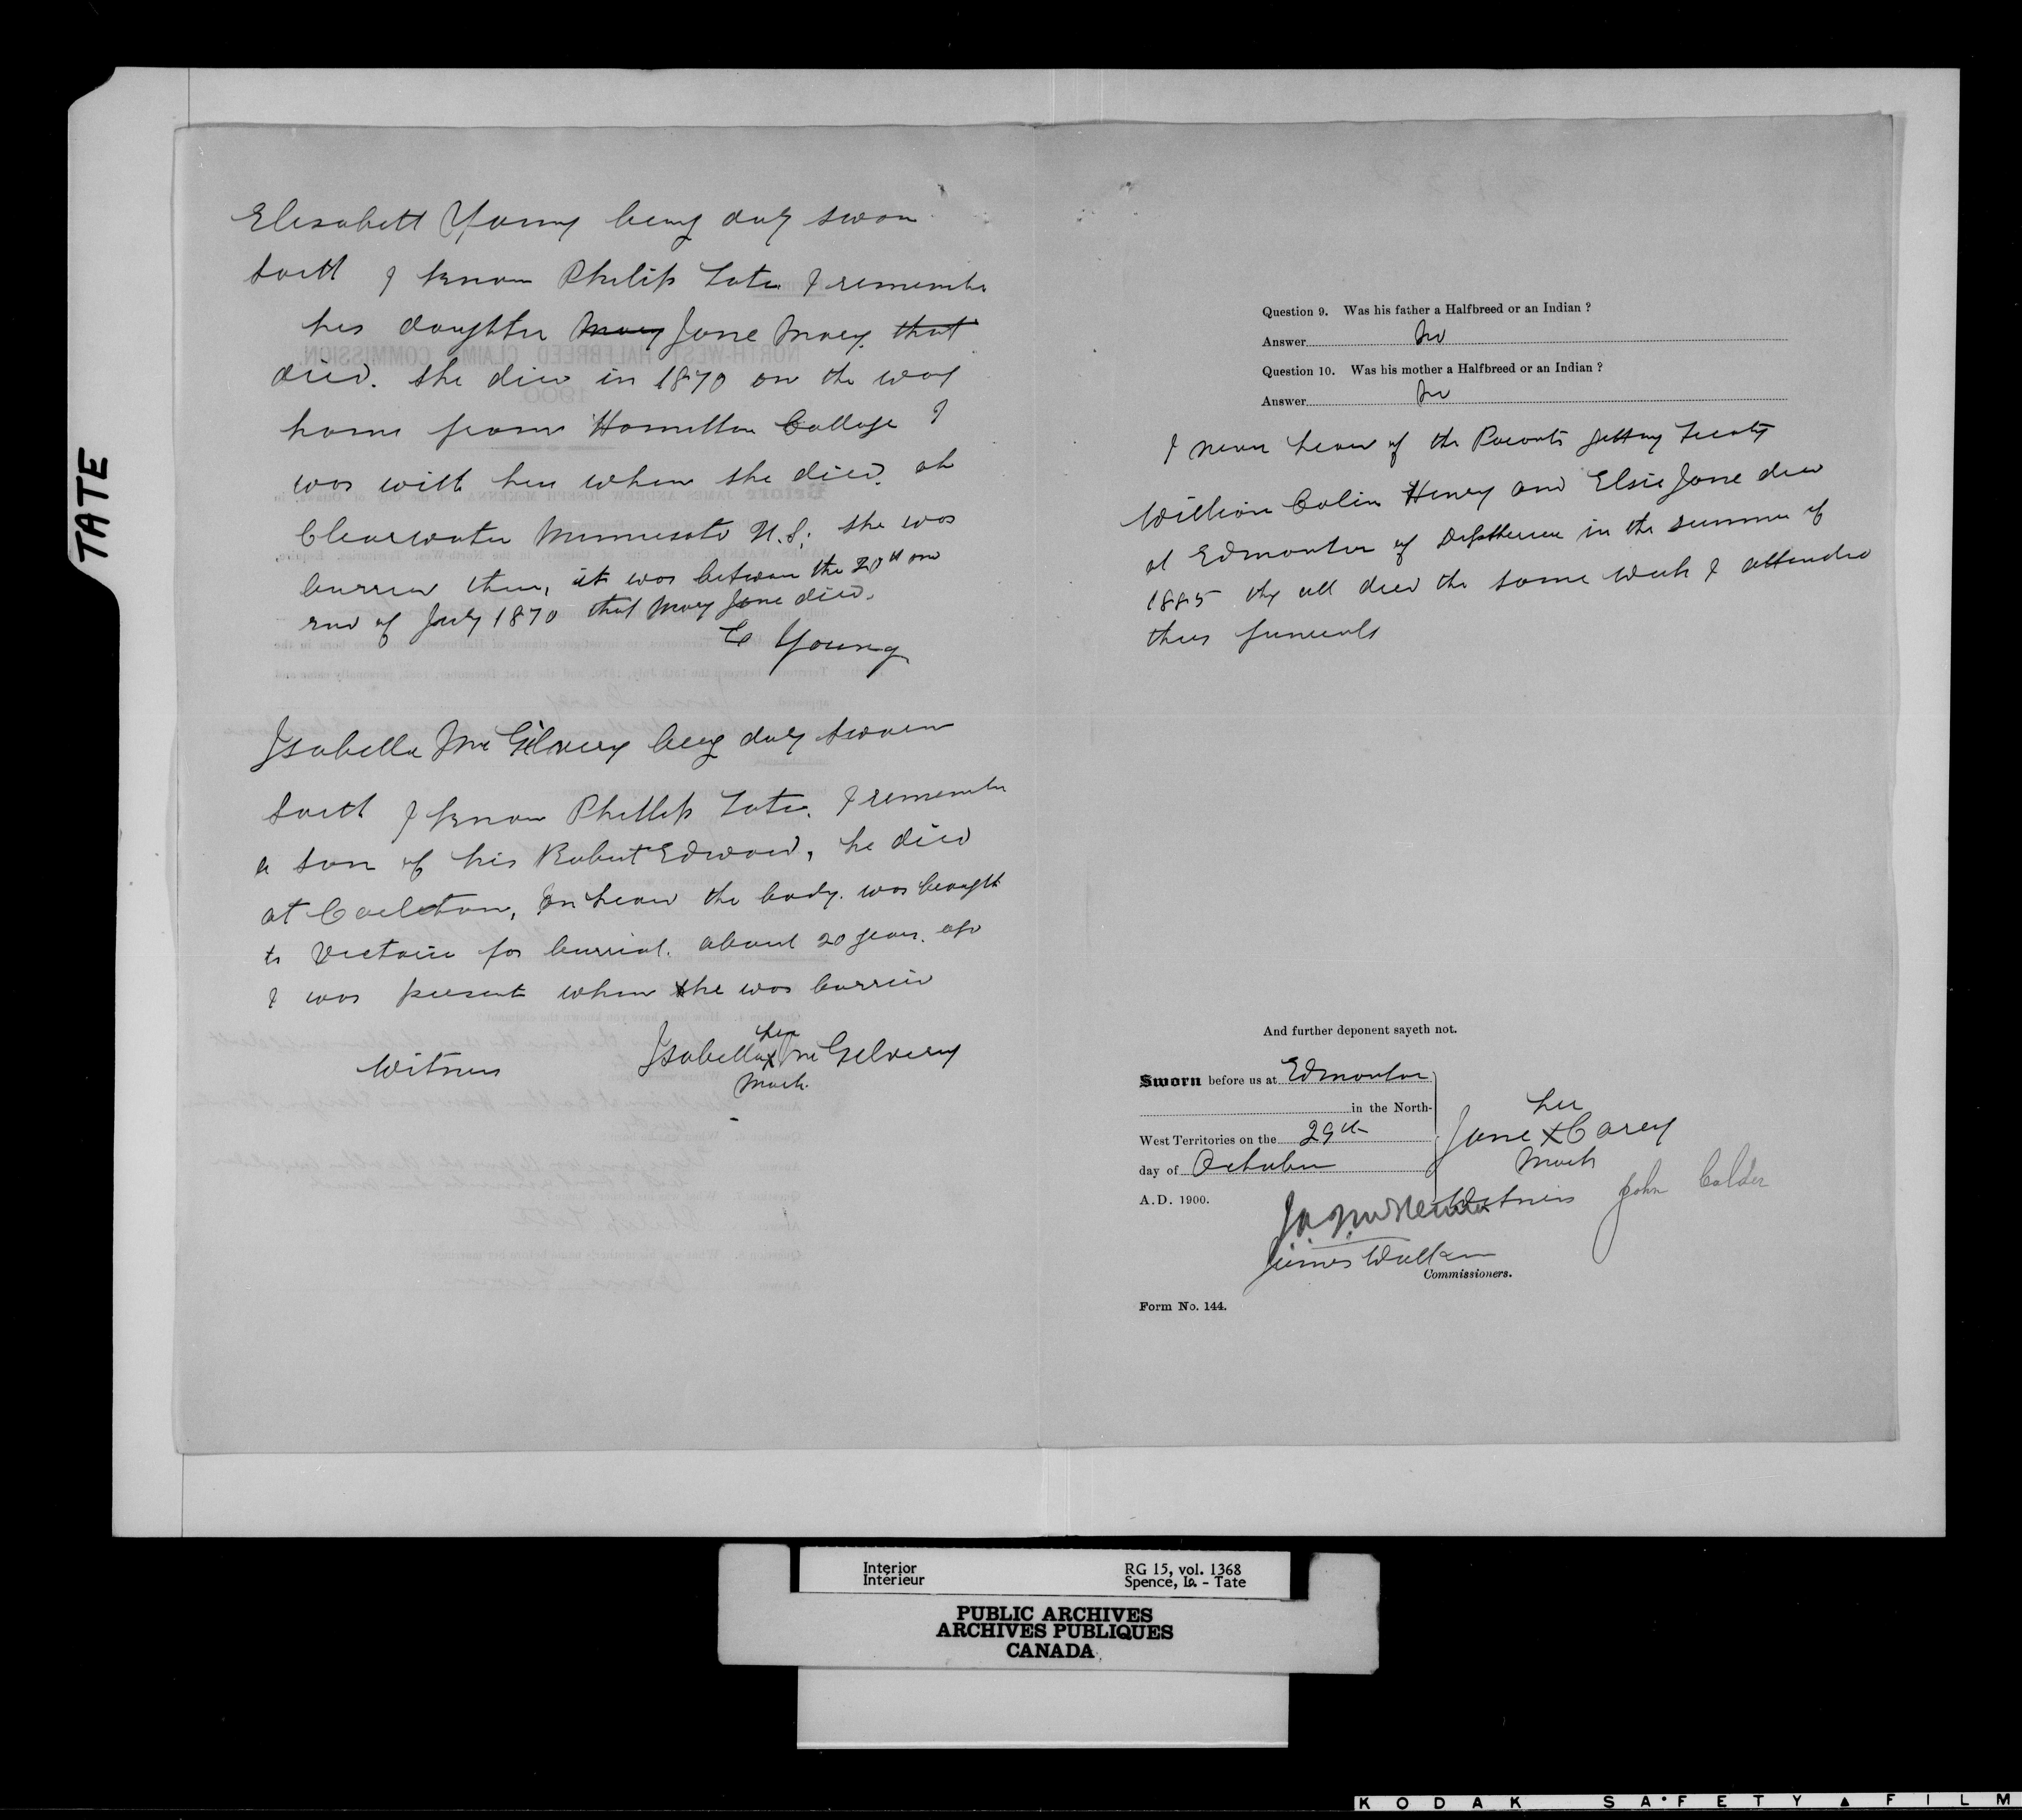 TATE
Elisabeth Young being duly sworn
saith I know Philip Tate. I remember
his daughter Mary Jane Mary. that
died. she died in 1870 on the way
home from Hamilton College I
was with her when she died. at
Clearwater Minnesota U.S. she was
burried there, it was between the 20th and
end of July 1870 that Mary Jane died.
E Young
Isabella McGilvery being duly sworn
saith I know Phillip Tate. I remember
a son of his Robert Edward, he died
at Carleton, the body. was brought
to Victoria for burrial. about 20 years. ago
I was present when he was burried
Witness
her
Isabella X McGilvery
mark.
Question 9. Was his father a Halfbreed or an Indian ?
Answer No
Question 10. Was his mother a Halfbreed or an Indian ?
Answer No
I never heard of the Parents getting Treaty
William Colin Henry and Elsie Jane died
at Edmonton of Diptheria in the summer of
1885 they all died the same week I attended
their funerals
And further deponent sayeth not.
Sworn before us at Edmonton
in the North-
West Territories on the 29th
day of October
A.D. 1900.
her
Jane X Carey
mark
Witness John Calder
James Walker
Commissioners.
Form No. 144.
Interior
Intérieur
RG 15, vol. 1368
Spence, Is. - Tate
PUBLIC ARCHIVES
ARCHIVES PUBLIQUES
CANADA
KODAK SAFETY FILM